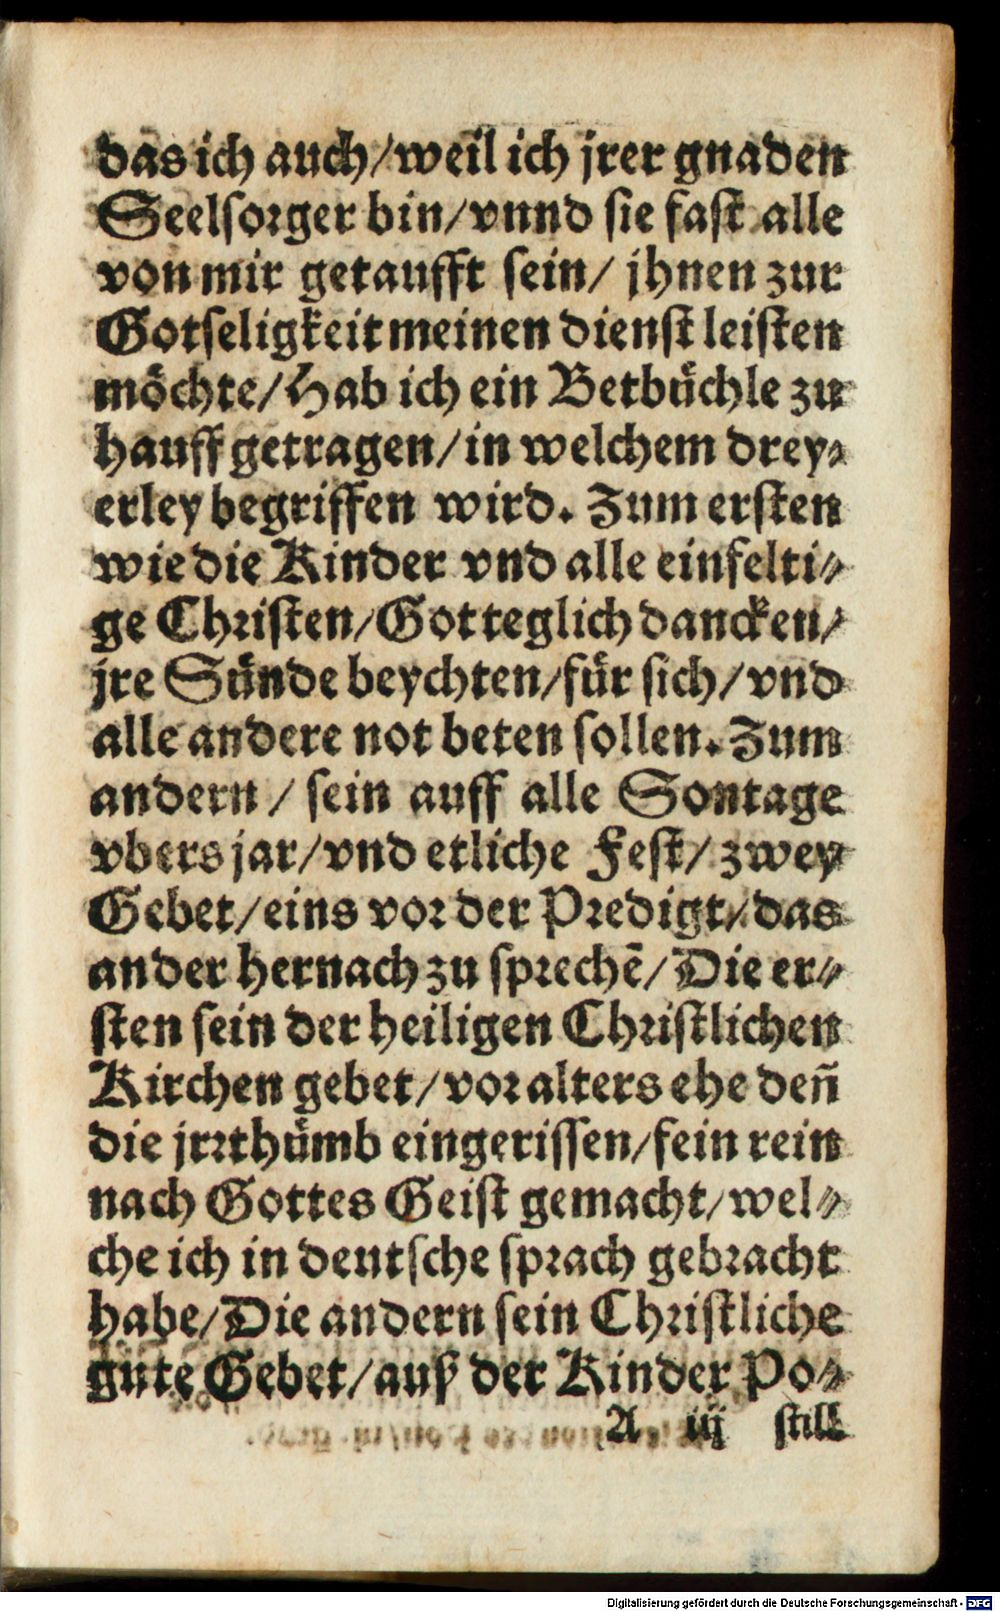 das ich auch/weil ich jrer gnaden
Seelsorger bin/vnnd sie fast alle
von mir getaufft sein/ jhnen zur
Gotseligkeit meinen dienst leisten
möchte/Hab ich ein Betbüchle zu
hauff getragen/in welchem drey-
erley begriffen wird. Zum ersten
wie die Kinder vnd alle einfelti-
ge Christen/Got teglich dancken/
jre Sünde beychten/für sich/vnd
alle andere not beten sollen. Zum
andern/ sein auff alle Sontage
vbers jar/vnd etliche Fest/zwey
Gebet/eins vor der Predigt/das
ander hernach zu sprechē/Die er-
sten sein der heiligen Christlichen
Kirchen gebet/vor alters ehe den̄
die jrrthümb eingerissen/fein rein
nach Gottes Geist gemacht/wel-
che ich in deutsche sprach gebracht
habe/Die andern sein Christliche
gute Gebet/auß der Kinder Po-
A iij still
Digitalisierung gefördert durch die Deutsche Forschungsgemeinschaft - DFG